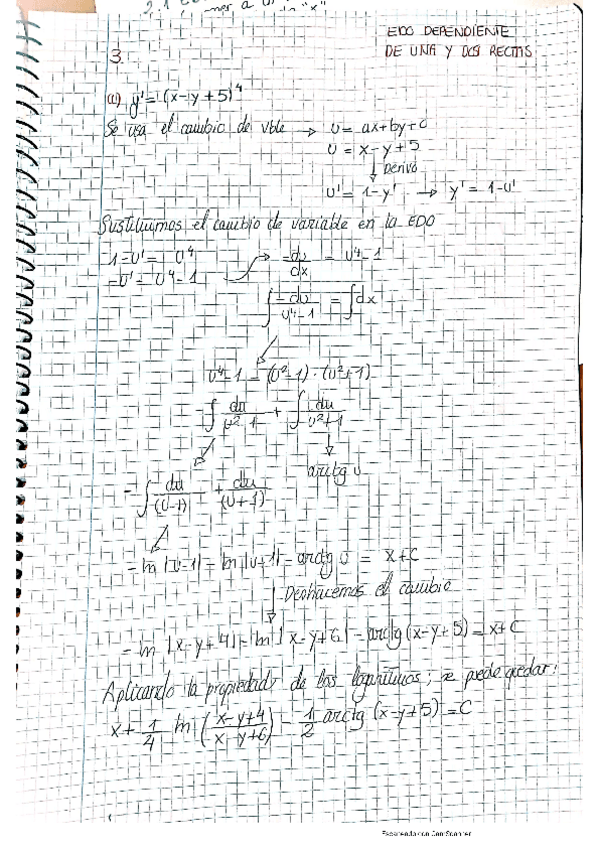 EDO DEPENDIENTE
DE UNA Y DOS RECTAS
3.
(a) y' = (x-y+5)^4
Se usa el cambio de vble → u = ax+by+c
u = x-y+5
↓ Derivo
u' = 1-y' → y' = 1-u'
Sustituimos el cambio de variable en la EDO
1-u' = u^4
-u' = u^4-1 → -du/dx = u^4-1
∫ -du/(u^4-1) = ∫dx
u^4-1 = (u^2-1)·(u^2+1)
∫ du/(u^2-1) + ∫ du/(u^2+1)
arctg u
-∫ du/(u-1) + du/(u+1)
-ln|u-1| - ln|u+1| - arctg u = x+C
Deshacemos el cambio
-ln|x-y+4| - ln|x-y+6| - arctg(x-y+5) = x+C
Aplicando la propiedad de los logaritmos, se puede quedar:
x + 1/4 ln((x-y+4)/(x-y+6)) - 1/2 arctg(x-y+5) = C
Escaneado con CamScanner